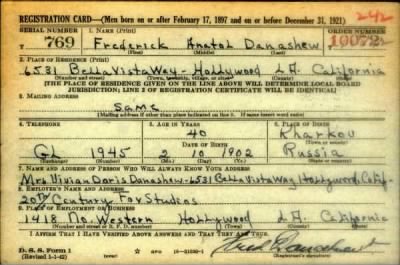 REGISTRATION CARD—(Men born on or after February 17, 1897 and on or before December 31, 1921) 242
SERIAL NUMBER 1. NAME (Print) ORDER NUMBER
769 Frederick Anatol Danashew 10072
(First) (Middle) (Last)
2. PLACE OF RESIDENCE (Print)
6531 Bella Vista Way - Hollywood L A. California
(Number and street) (Town, township, village, or city) (County) (State)
[THE PLACE OF RESIDENCE GIVEN ON THE LINE ABOVE WILL DETERMINE LOCAL BOARD
JURISDICTION; LINE 2 OF REGISTRATION CERTIFICATE WILL BE IDENTICAL]
3. MAILING ADDRESS
Same
[Mailing address if other than place indicated on line 2. If same insert word same]
4. TELEPHONE 5. AGE IN YEARS 6. PLACE OF BIRTH
40 Kharkov
DATE OF BIRTH (Town or county)
GL 1945 2 10 1902 Russia
(Exchange) (Number) (Mo.) (Day) (Yr.) (State or country)
7. NAME AND ADDRESS OF PERSON WHO WILL ALWAYS KNOW YOUR ADDRESS
Mrs Vivian Doris Danashew - 6531 Bella Vista Way, Hollywood, Calif.
8. EMPLOYER'S NAME AND ADDRESS
20th Century Fox Studios
9. PLACE OF EMPLOYMENT OR BUSINESS
1418 No. Western Hollywood L A. California
(Number and street or R. F. D. number) (Town) (County) (State)
I AFFIRM THAT I HAVE VERIFIED ABOVE ANSWERS AND THAT THEY ARE TRUE.
D. S. S. Form 1
(Revised 1-1-42) (over)